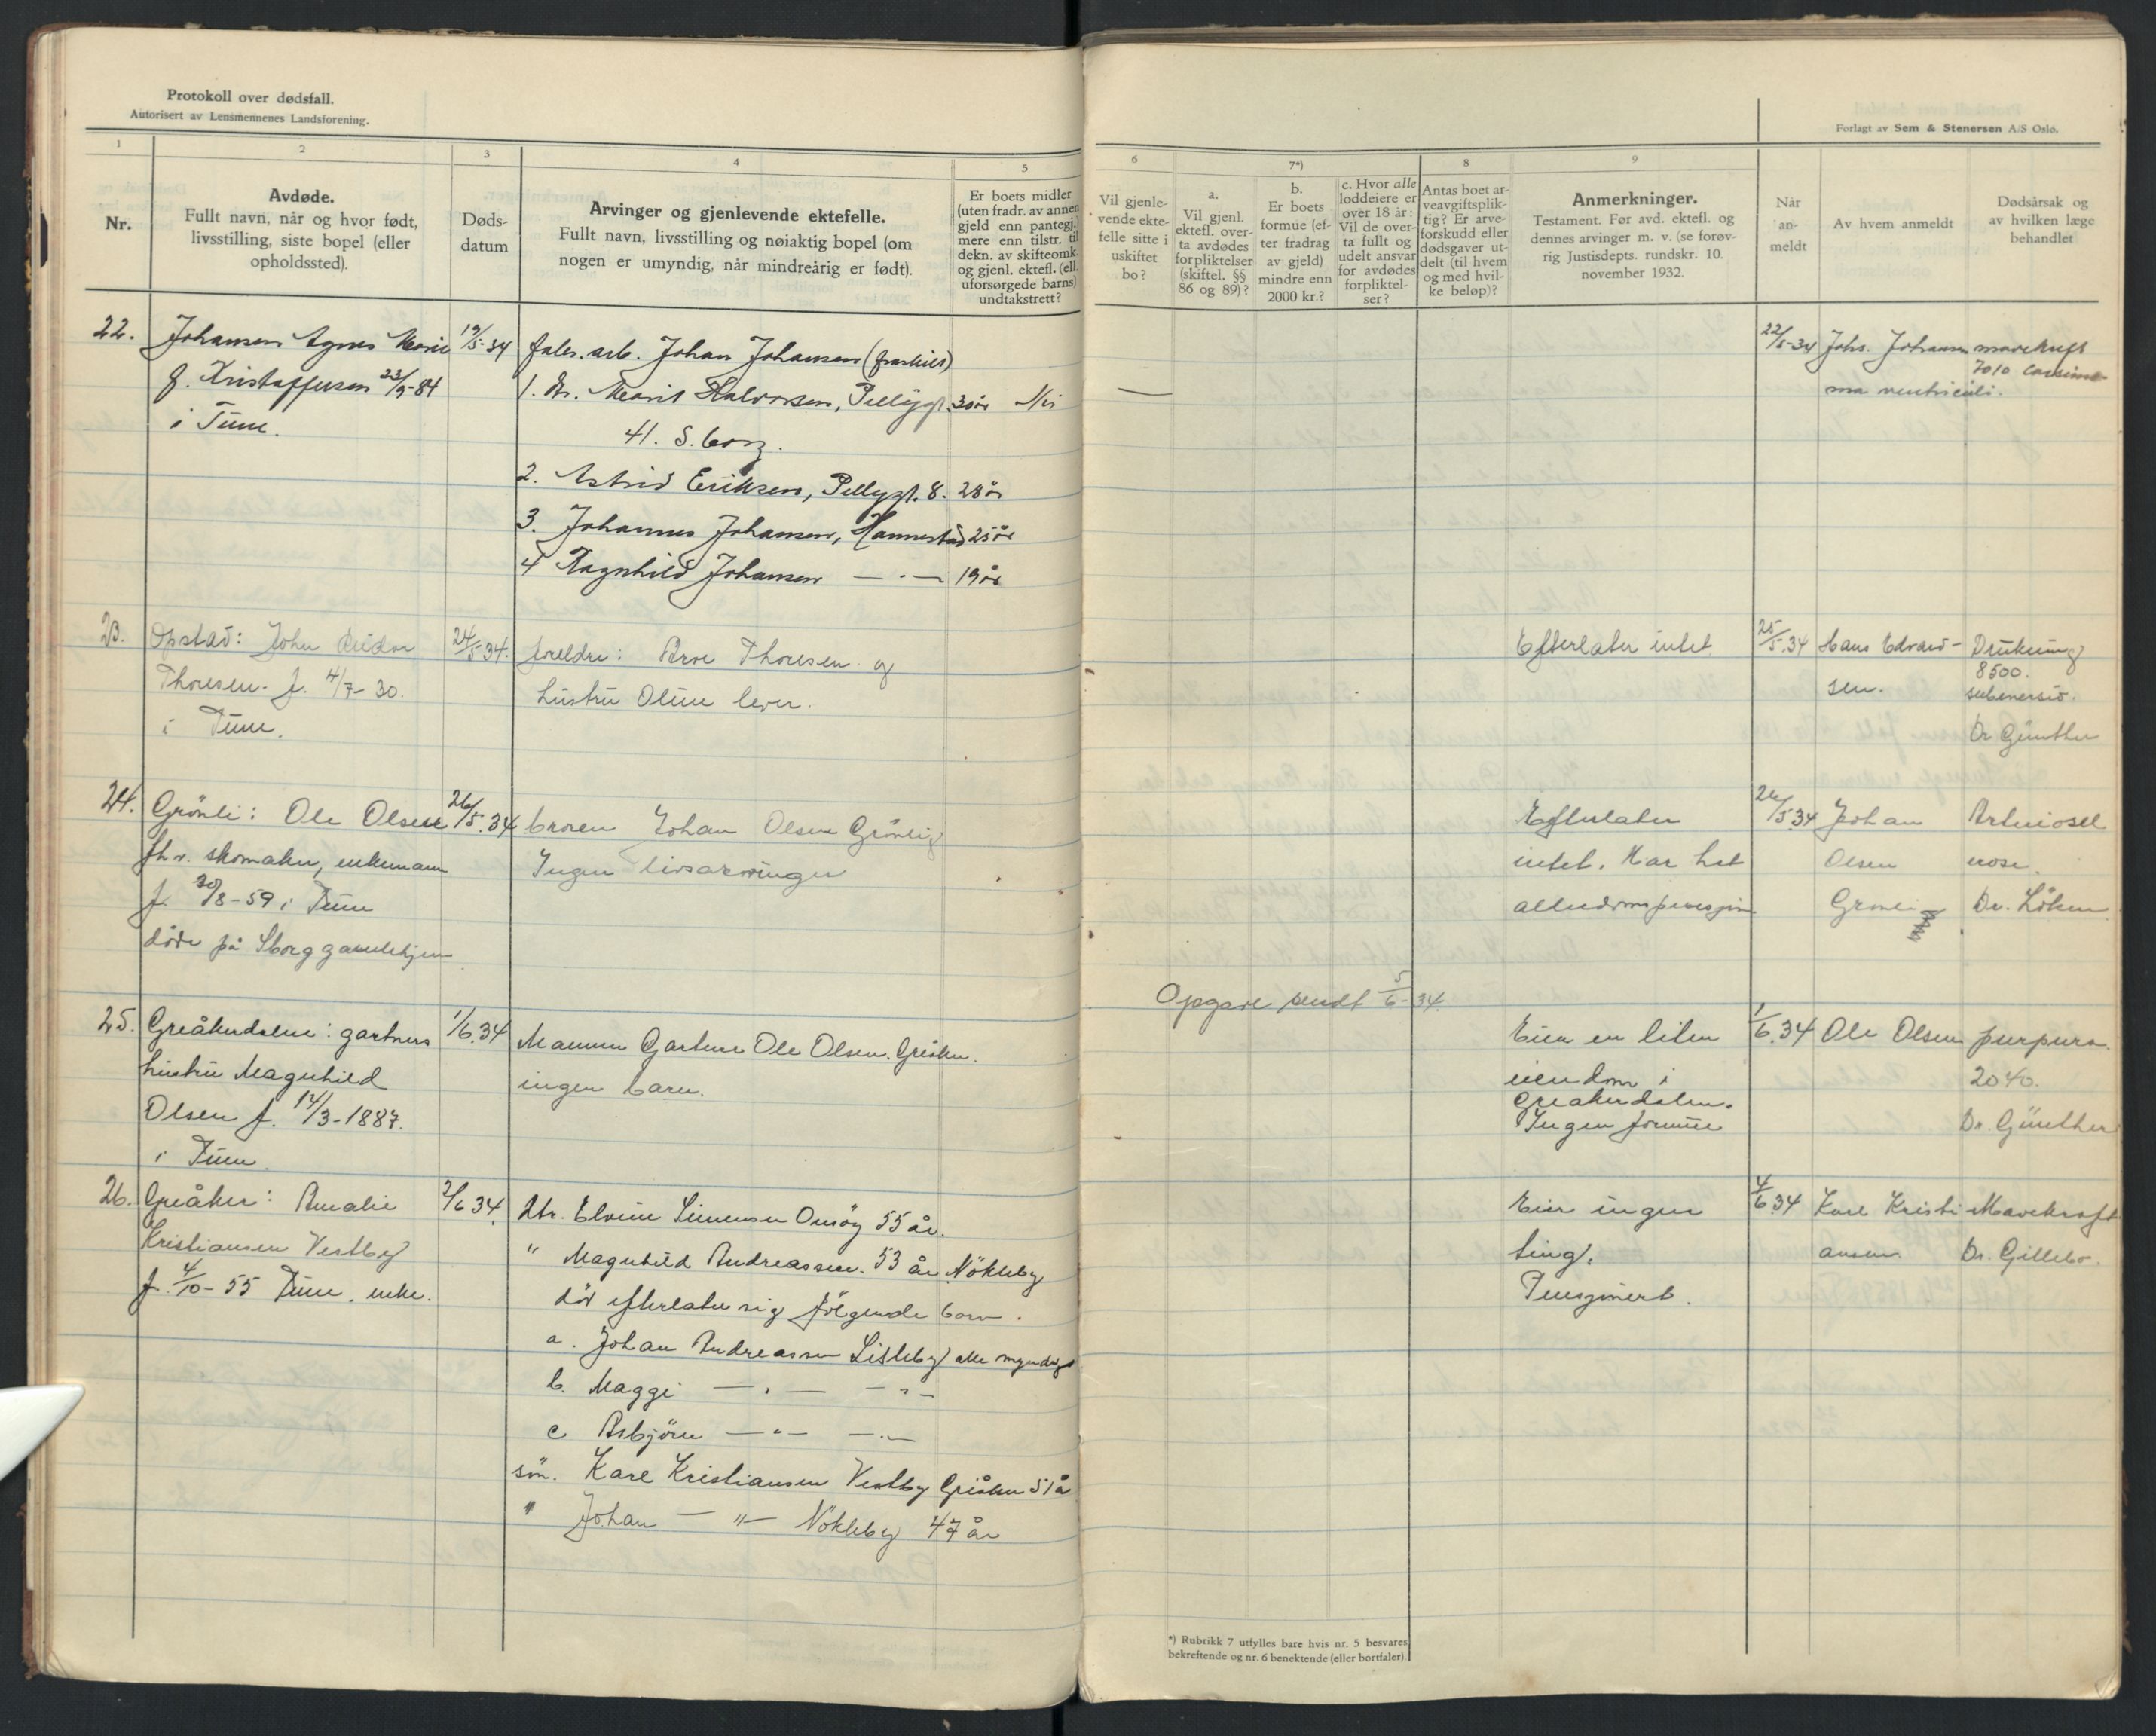 Protokoll over dødsfall.
Autorisert av Lensmennenes Landsforening.
1
2
3
4
5
Nr.
Avdøde.
Fullt navn, når og hvor født,
livsstilling, siste bopel (eller
opholdssted).
Døds-
datum
Arvinger og gjenlevende ektefelle.
Fullt navn, livsstilling og nøiaktig bopel (om
nogen er umyndig, når mindreårig er født).
Er boets midler
(uten fradr. av annen
gjeld enn pantegj.)
mere enn tilstr. til
dekn. av skifteomk.
og gjenl. ektefl. (ell.
uforsørgede barns)
undtakstrett?
22.
Johansen Agnes Marie
f. Kristoffersen 23/9-84
i Tune.
19/5-34
fabr. arb. Johan Johansen (fraskilt)
1. dtr. Marit Halvorsen, Pellygt. 30 år
41. S.borg.
2. Astrid Eriksen, Pellygt. 8. 28 år
3. Johannes Johansen, Hannestad 25 år
4 Ragnhild Johansen — . — 19 år
23.
Opstad: John Reidar
Thoresen. f. 4/7-30.
i Tune.
24/5.34.
foreldre: Arve Thoresen og
hustru Oline lever.
24.
Grönli: Ole Olsen
fhv. skomaker, enkemann
f. 30/8-59 i Tune
döde på Sborg gamlehjem
26/5.34
broren Johan Olsen Grönli
Ingen livsarvinger
25.
Greåkerdalen: gartners
hustru Magnhild
Olsen f. 14/3-1887.
i Tune.
1/6.34
Mannen Gartner Ole Olsen. Greåker.
ingen barn.
26.
Greåker: Amalie
Kristiansen Vestby
f. 4/10-55 Tune. enke.
2/6 34.
Dtr. Elvine Simensen Onsöy 55 år.
" Magnhild Andreassen. 53 år Nökleby
död efterlater sig fölgende barn.
a. Johan Andreassen Lisleby alle myndige
b. Maggi — " — — " —
c Asbjörn — " — — " —
sön. Karl Kristiansen Vestby Greåker 51 å
" Johan — " — Nökleby 47 år
6
7*)
8
9
Vil gjenle-
vende ekte-
felle sitte i
uskiftet
bo?
a.
Vil gjenl.
ektefl. over-
ta avdødes
forpliktelser
(skiftel. §§
86 og 89)?
b.
Er boets
formue (ef-
ter fradrag
av gjeld)
mindre enn
2000 kr.?
c. Hvor alle
loddeiere er
over 18 år:
Vil de over-
ta fullt og
udelt ansvar
for avdødes
forpliktel-
ser?
Antas boet ar-
veavgiftsplik-
tig? Er arve-
forskudd eller
dødsgaver ut-
delt (til hvem
og med hvil-
ke beløp)?
Anmerkninger.
Testament. Før avd. ektefl. og
dennes arvinger m. v. (se forøv-
rig Justisdepts. rundskr. 10.
november 1932.
Forlagt av Sem & Stenersen A/S Oslo.
Når
an-
meldt
Av hvem anmeldt
Dødsårsak og
av hvilken læge
behandlet
22/5-34 Johs. Johansen mavekreft
ventriculi.
Efterlater intet
25/5.34 Hans Edvard-
sen.
Drukning
8500.
submersio.
Dr Günther
Efterlater
intet. Har hat
alderdomspensjon
26/5.34 Johan
Olsen
Grönli
Arterioscl
erose.
Dr. Löken
Opgave sendt 5/6-34.
Eier en liten
eiendom i
Greåkerdalen.
Ingen formue
1/6.34 Ole Olsen purpura.
2040.
Dr. Günther
Eier ingen
ting.
Pensjonert.
4/6.34 Karl Kristi
ansen.
Mavekreft
Dr. Gillebo.
*) Rubrikk 7 utfylles bare hvis nr. 5 besvares
bekreftende og nr. 6 benektende (eller bortfaler).